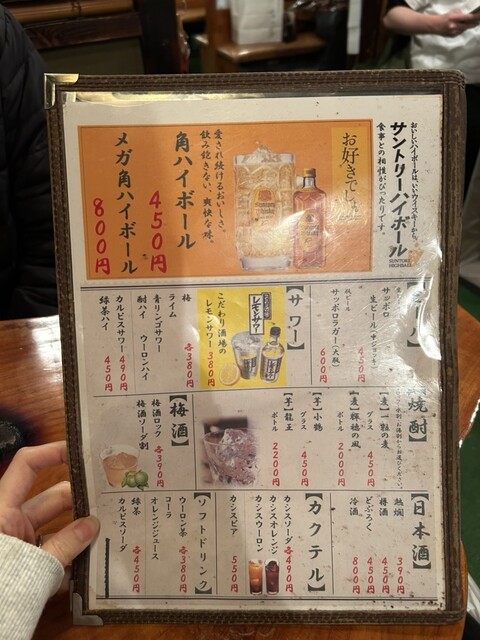 おいしいハイボールは、いいウイスキーから。
サントリーハイボール
食事との相性がぴったりです。
SUNTORY
HIGHBALL
お好きでしょ
愛され続けるおいしさ。
飲み飽きない、爽快な味。
角ハイボール
450円
メガ角ハイボール
800円
ビール】
サッポロ
生ビール(中ジョッキ)
450円
瓶ビール
サッポロラガー(大瓶)
600円
【サワー】
レモンサワー
こだわり酒場の
レモンサワー 380円
梅
ライム 各380円
青リンゴサワー
酎ハイ ウーロンハイ
カルピスサワー 490円
緑茶ハイ 450円
【焼酎】
【麦】一粒の麦
グラス 450円
【麦】輝穂の風
ボトル 2000円
【芋】小鶴
グラス 450円
【芋】龍王
ボトル 2200円
【梅酒】
梅酒ロック 各390円
梅酒ソーダ割
【日本酒】
熱燗 390円
樽酒 450円
どぶろく 450円
冷酒 800円
【カクテル】
カシスソーダ 各490円
カシスオレンジ
カシスウーロン
カシスビア 550円
【ソフトドリンク】
ウーロン茶 各380円
コーラ
オレンジジュース
緑茶 各450円
カルピスソーダ